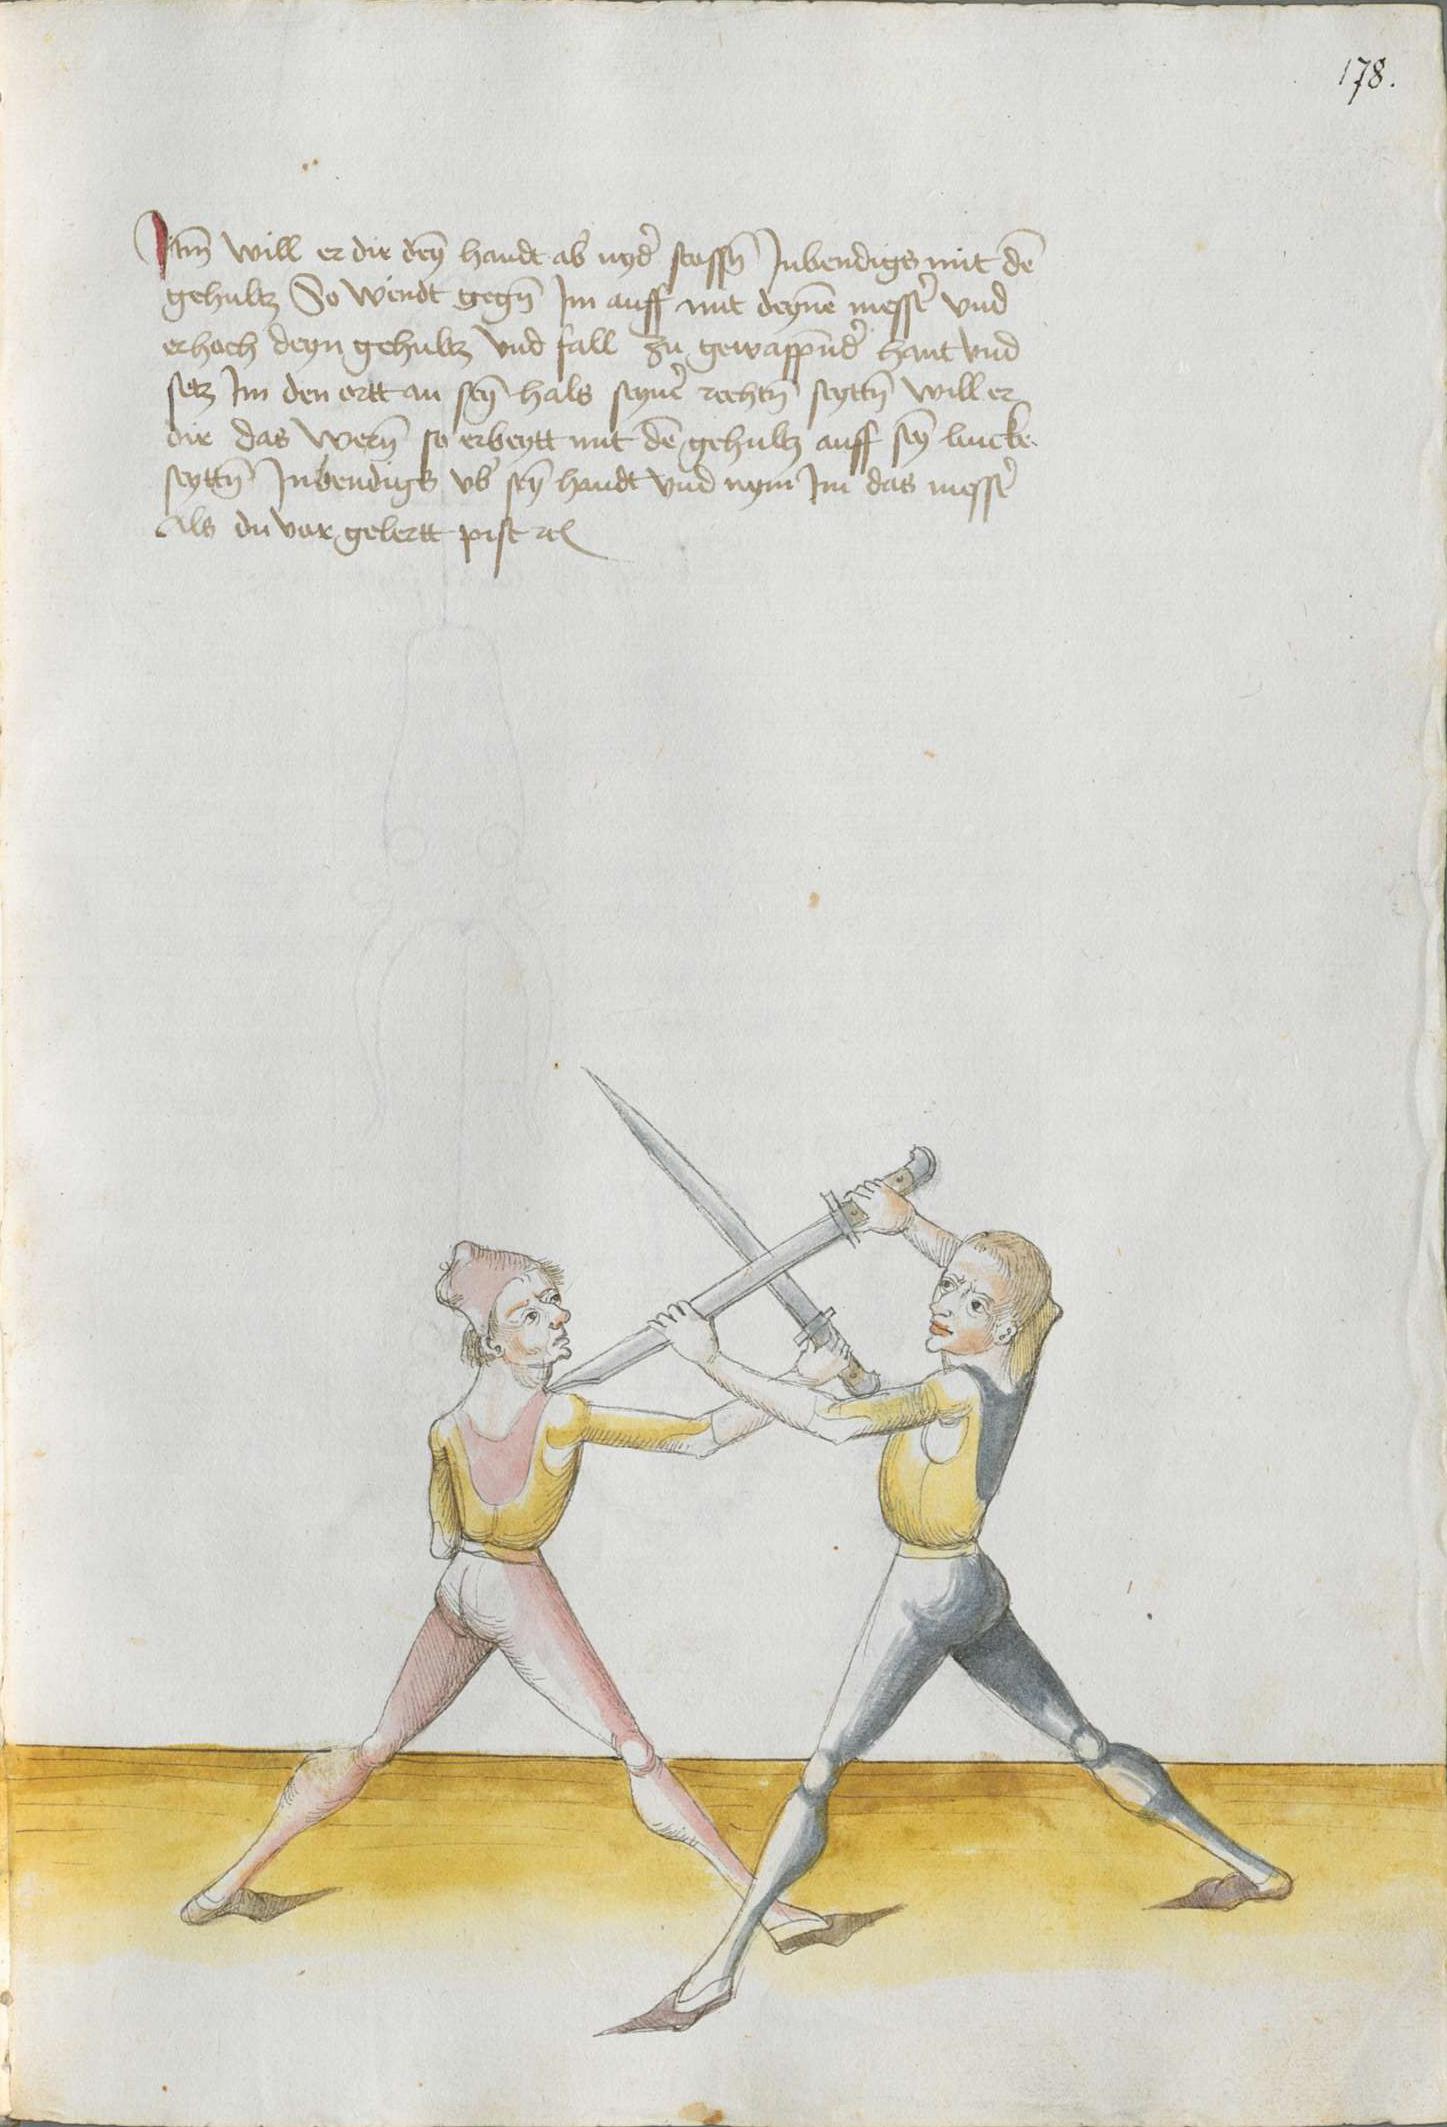 178.
Itm̄ will er die deȳ handt ab nyd̓ stossn̄ Inbendigs mit dē
gehultz So wendt gegn̄ Im auff mit deynē mess̓ vnd
erhoch deyn gehultz vnd fall zu gewappēnd̓ hant vnd
setz Im den ortt an seȳ hals seyn̓ rechtn̄ seyttn̄ will er
dir das wern̄ so erbeytt mit dē gehultz auff seȳ lincke
seyttn̄ Inbendigs vb̓ seȳ handt vnd nym Im das mess̓
Als du vor gelertt pist